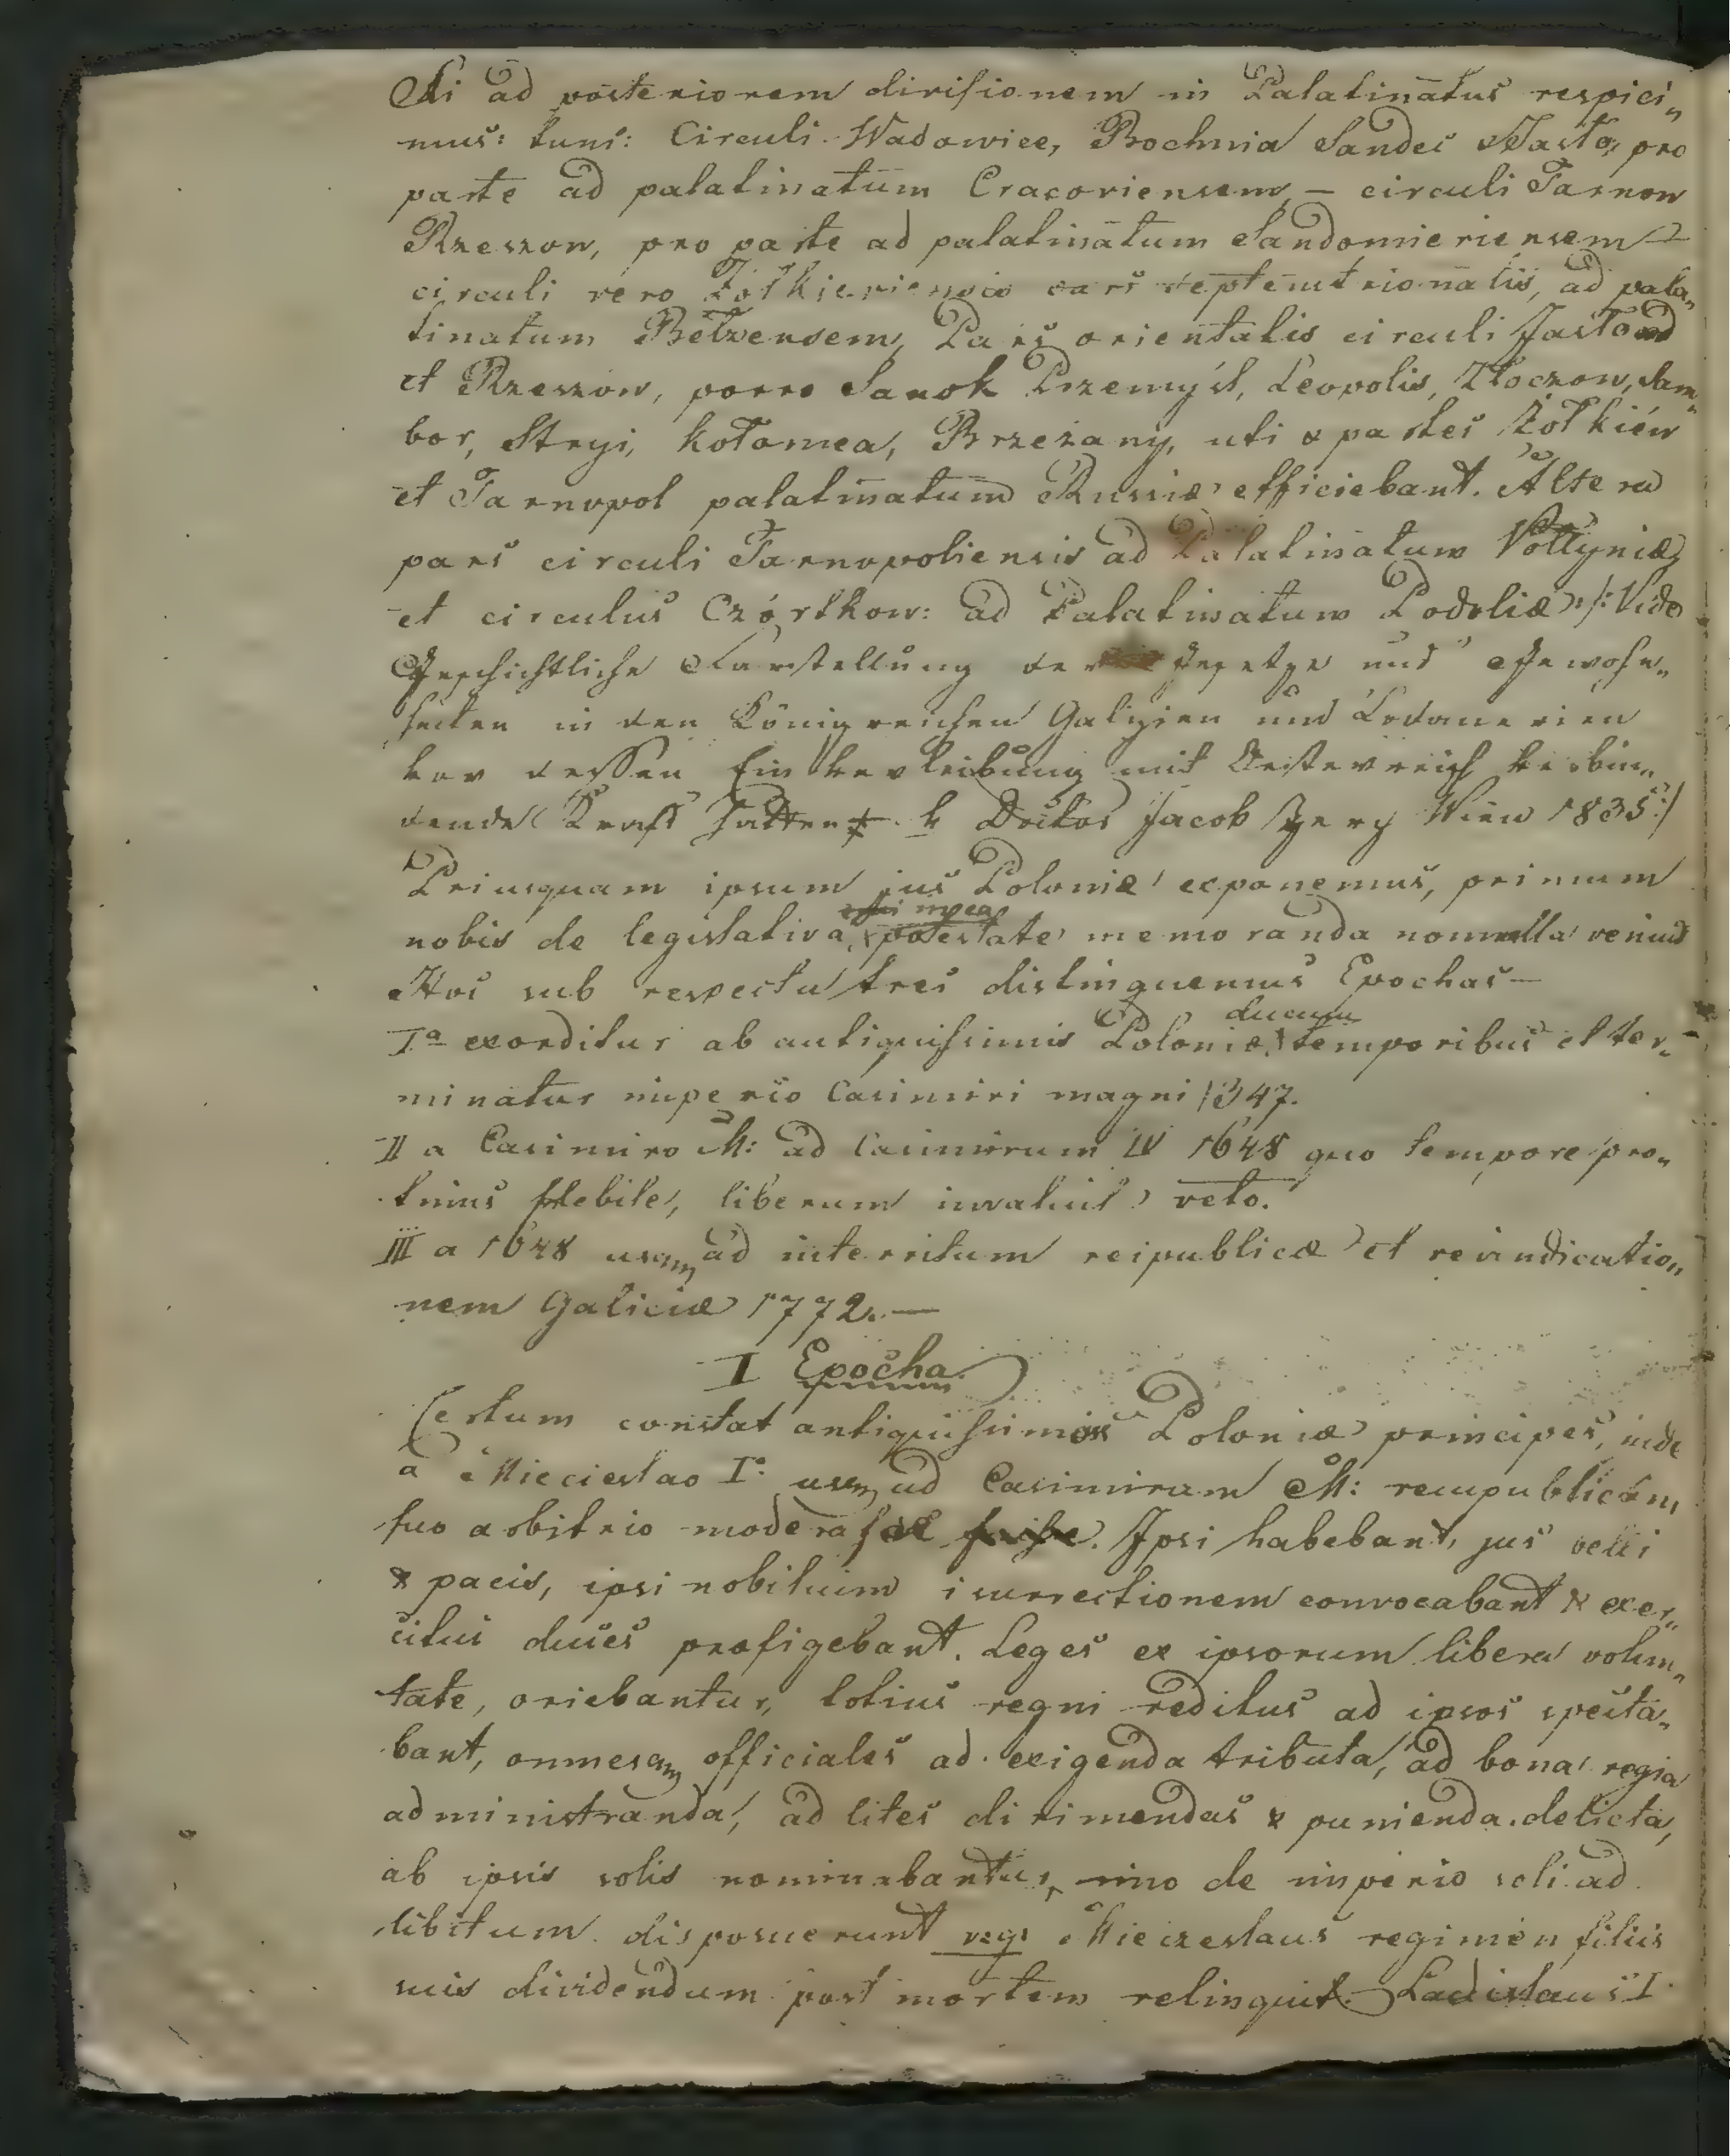 Si ad posteriorem divisionem in Palatinatus respici„
mus: tunc: Circuli Wadowice, Bochnia Sandec Jasło, pro
parte ad palatinatum Cracoviensem, — circuli Tarnow
Rzeszow, pro parte ad palatinatum Sandomieriensem —
circuli vero Żołkieviensis pars septemtrionalis, ad pala„
tinatum Bełzensem, Pars orientalis circuli Jasło
et Rzeszow, porro Sanok Przemyśl, Leopolis, Złoczow, Sam„
bor, Stryi, Kołomea, Brzeżany, uti & partes Żołkiew
et Tarnopol palatinatum Russiæ efficiebant. Altera
pars circuli Tarnopoliensis ad Palatinatum Vollyniæ
et circulus Czortkow: ad Palatinatum Podoliæ /: Vide
Geschichtliche Darstellung der Gesetze und Gewohn„
heiten in den Königreichen Galizien und Lodomerien
vor dessen Einverleibung mit Oesterreich verbin„
dende Kraft hatten. v Doctor Jacob Wien 1835 :/
Priusquam ipsum jus Poloniæ exponemus, primum
nobis de legislativa, potestate memoranda nonnulla veniunt
Hoc sub respectu tres distinguemus Epochas —
Iª exorditur ab antiquissimis Poloniæ ducum temporibus et ter„
minatur imperio Casimiri magni 1347.
II a Casimiro M: ad Casimirum IV 1648 quo tempore pro„
tinus flebile, liberum invaluit veto.
III a 1648 usq ad interritum reipublicæ et revindicatio„
nem Galiciæ 1772. —
I Epocha
Certum constat antiquissimos Poloniæ principes, inde
a Miecislao Iº usq ad Casimirum M: rempublicam
suo arbitrio. Ipsi habebant, jus belli
& pacis, ipsi nobilium isurrectionem convocabant & exer„
citus duces profigebant. Leges ex ipsorum libera volun„
tate, oriebantur, totius regni reditus ad ipsos specta„
bant, omnesq officiales ad exigenda tributa, ad bona regia
administranda, ad lites dirimendas & punienda delicta,
ab ipsis solis nominabantur, imo de imperio soli ad
libitum disposuerunt Mieczeslaus regimen filiis
suis dividendum post mortem relinquit. Ladislaus I